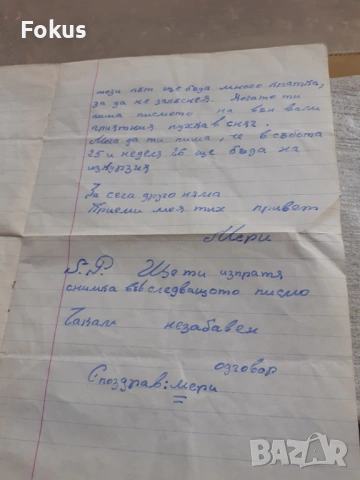 Fokus
този път ще бъда много кратка,
за да не закъснея. Когато ти
пиша писмото на вън вали
приятния пухкав сняг.
Мога да ти пиша, че в събота
25 и неделя 26 ще бъда на
екскурзия
За сега друго няма
Приеми моя тих привет
Мери
S.P. Ще ти изпратя
снимка във следващото писмо
Чакам незабавен
отговор
С поздрав: Мери
BAZAR